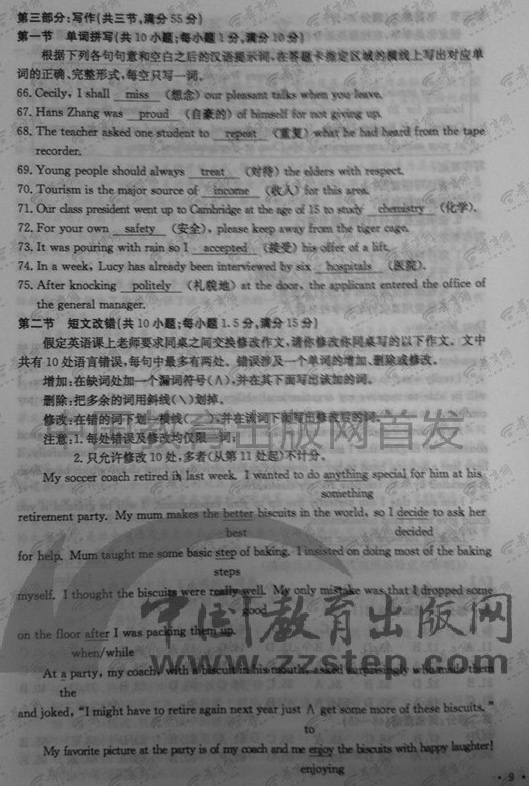 第三部分:写作(共三节,满分 55 分)
第一节 单词拼写(共 10 小题;每小题 1 分,满分 10 分)
根据下列各句句意和空白之后的汉语提示词,在答题卡指定区域的横线上写出对应单
词的正确、完整形式,每空只写一词。
66. Cecily, I shall miss (想念) our pleasant talks when you leave.
67. Hans Zhang was proud (自豪的) of himself for not giving up.
68. The teacher asked one student to repeat (重复) what he had heard from the tape
recorder.
69. Young people should always treat (对待) the elders with respect.
70. Tourism is the major source of income (收入) for this area.
71. Our class president went up to Cambridge at the age of 15 to study chemistry (化学).
72. For your own safety (安全), please keep away from the tiger cage.
73. It was pouring with rain so I accepted (接受) his offer of a lift.
74. In a week, Lucy has already been interviewed by six hospitals (医院).
75. After knocking politely (礼貌地) at the door, the applicant entered the office of
the general manager.
第二节 短文改错(共 10 小题;每小题 1.5 分,满分 15 分)
假定英语课上老师要求同桌之间交换修改作文,请你修改你同桌写的以下作文。文中
共有 10 处语言错误,每句中最多有两处。错误涉及一个单词的增加、删除或修改。
增加:在缺词处加一个漏词符号(∧),并在其下面写出该加的词。
删除:把多余的词用斜线(\)划掉。
修改:在错的词下划一横线( ),并在该词下面写出修改后的词。
注意:1. 每处错误及修改均仅限一词;
2. 只允许修改 10 处,多者(从第 11 处起)不计分。
My soccer coach retired in last week. I wanted to do anything special for him at his
something
retirement party. My mum makes the better biscuits in the world, so I decide to ask her
best decided
for help. Mum taught me some basic step of baking. I insisted on doing most of the baking
steps
myself. I thought the biscuits were really well. My only mistake was that I dropped some
good
on the floor after I was packing them up.
when/while
At a party, my coach, with a biscuit in his mouth, asked surprisingly who made them
the
and joked, “I might have to retire again next year just ∧ get some more of these biscuits.”
to
My favorite picture at the party is of my coach and me enjoy the biscuits with happy laughter!
enjoying
中国教育出版网首发
中国教育出版网
www.zzstep.com
· 9 ·